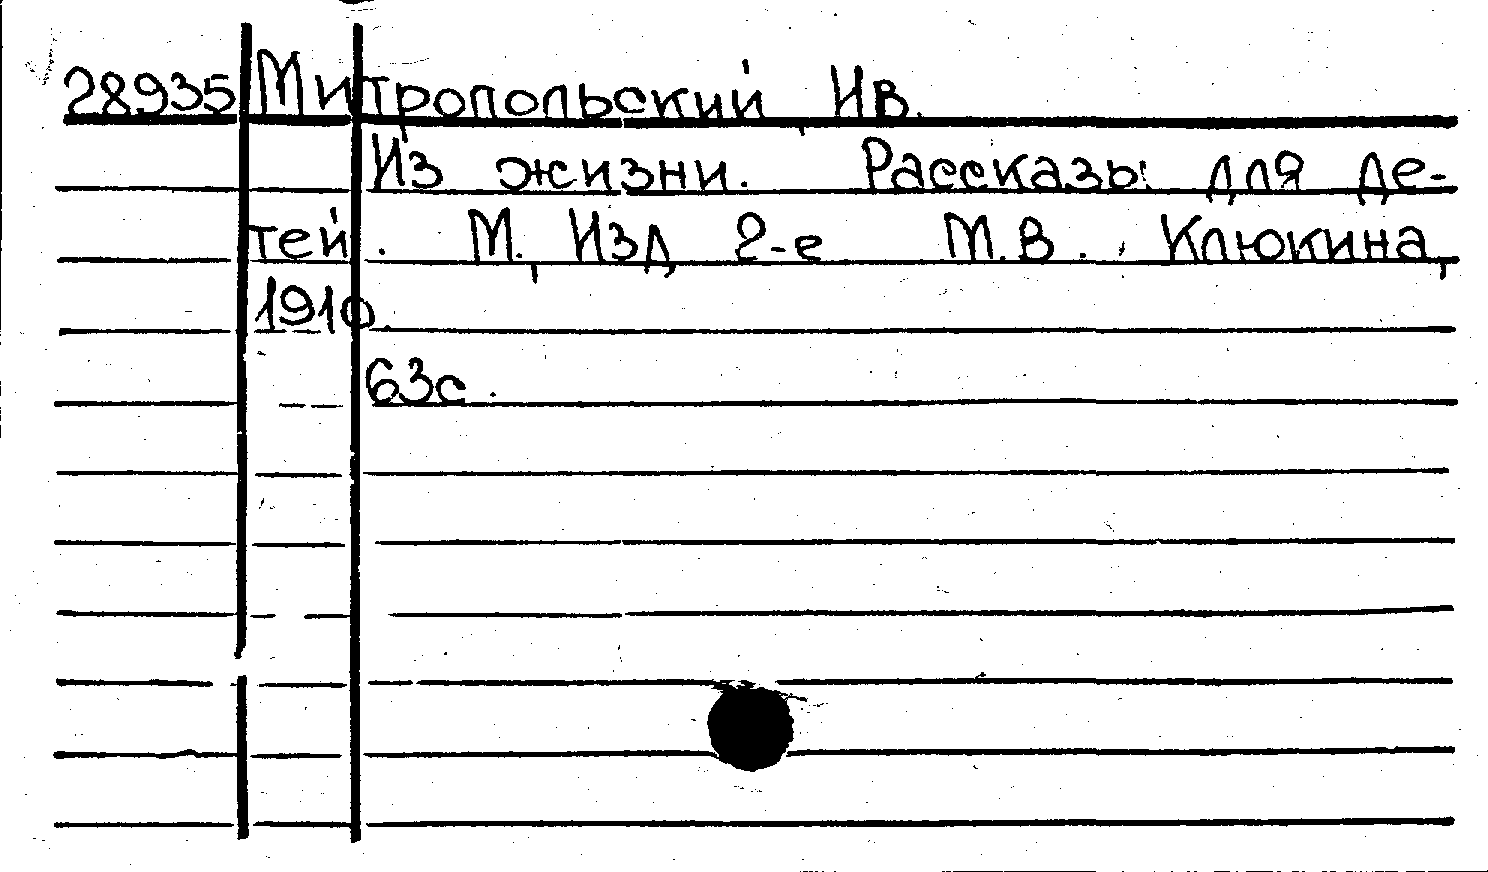 28935 Митропольский Ив.
Из жизни. Рассказы для де-
тей. М, Изд 2-е М.В. Клюкина,
1910.
63с.